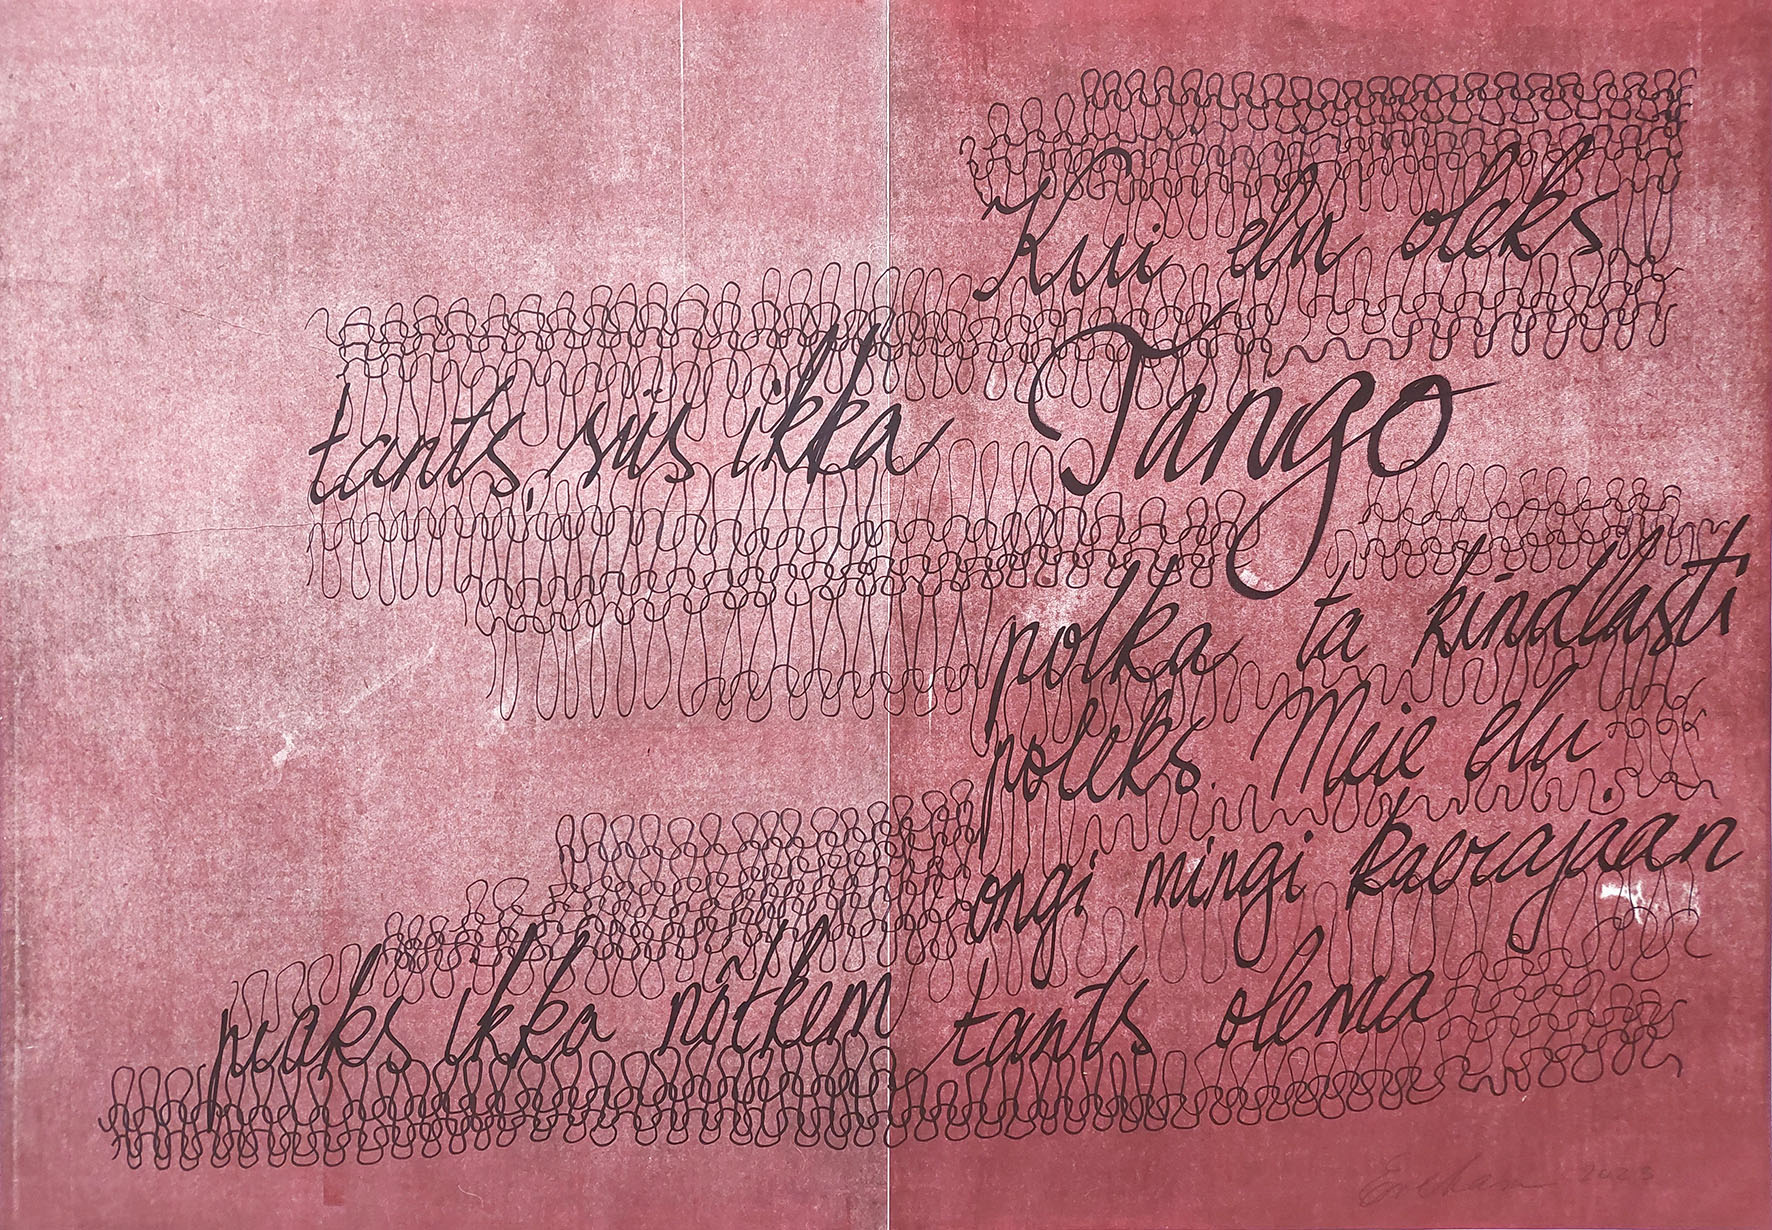 Kui elu oleks
tants, siis ikka Tango
polka ta kindlasti
poleks. Meie elu
ongi mingi kaerajaan
peaks ikka nõtkem tants olema
2023